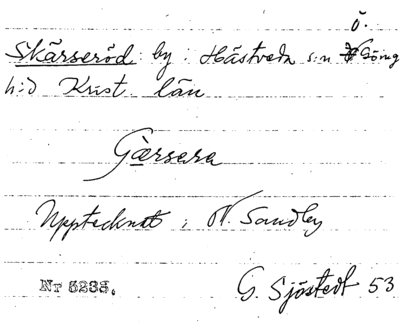 Skärseröd by: Hästveda s:n V Ö. Göing
h:d Krist. län
Gærsera
Upptecknat i N. Sandby
Nr 5235. G. Sjöstedt 53